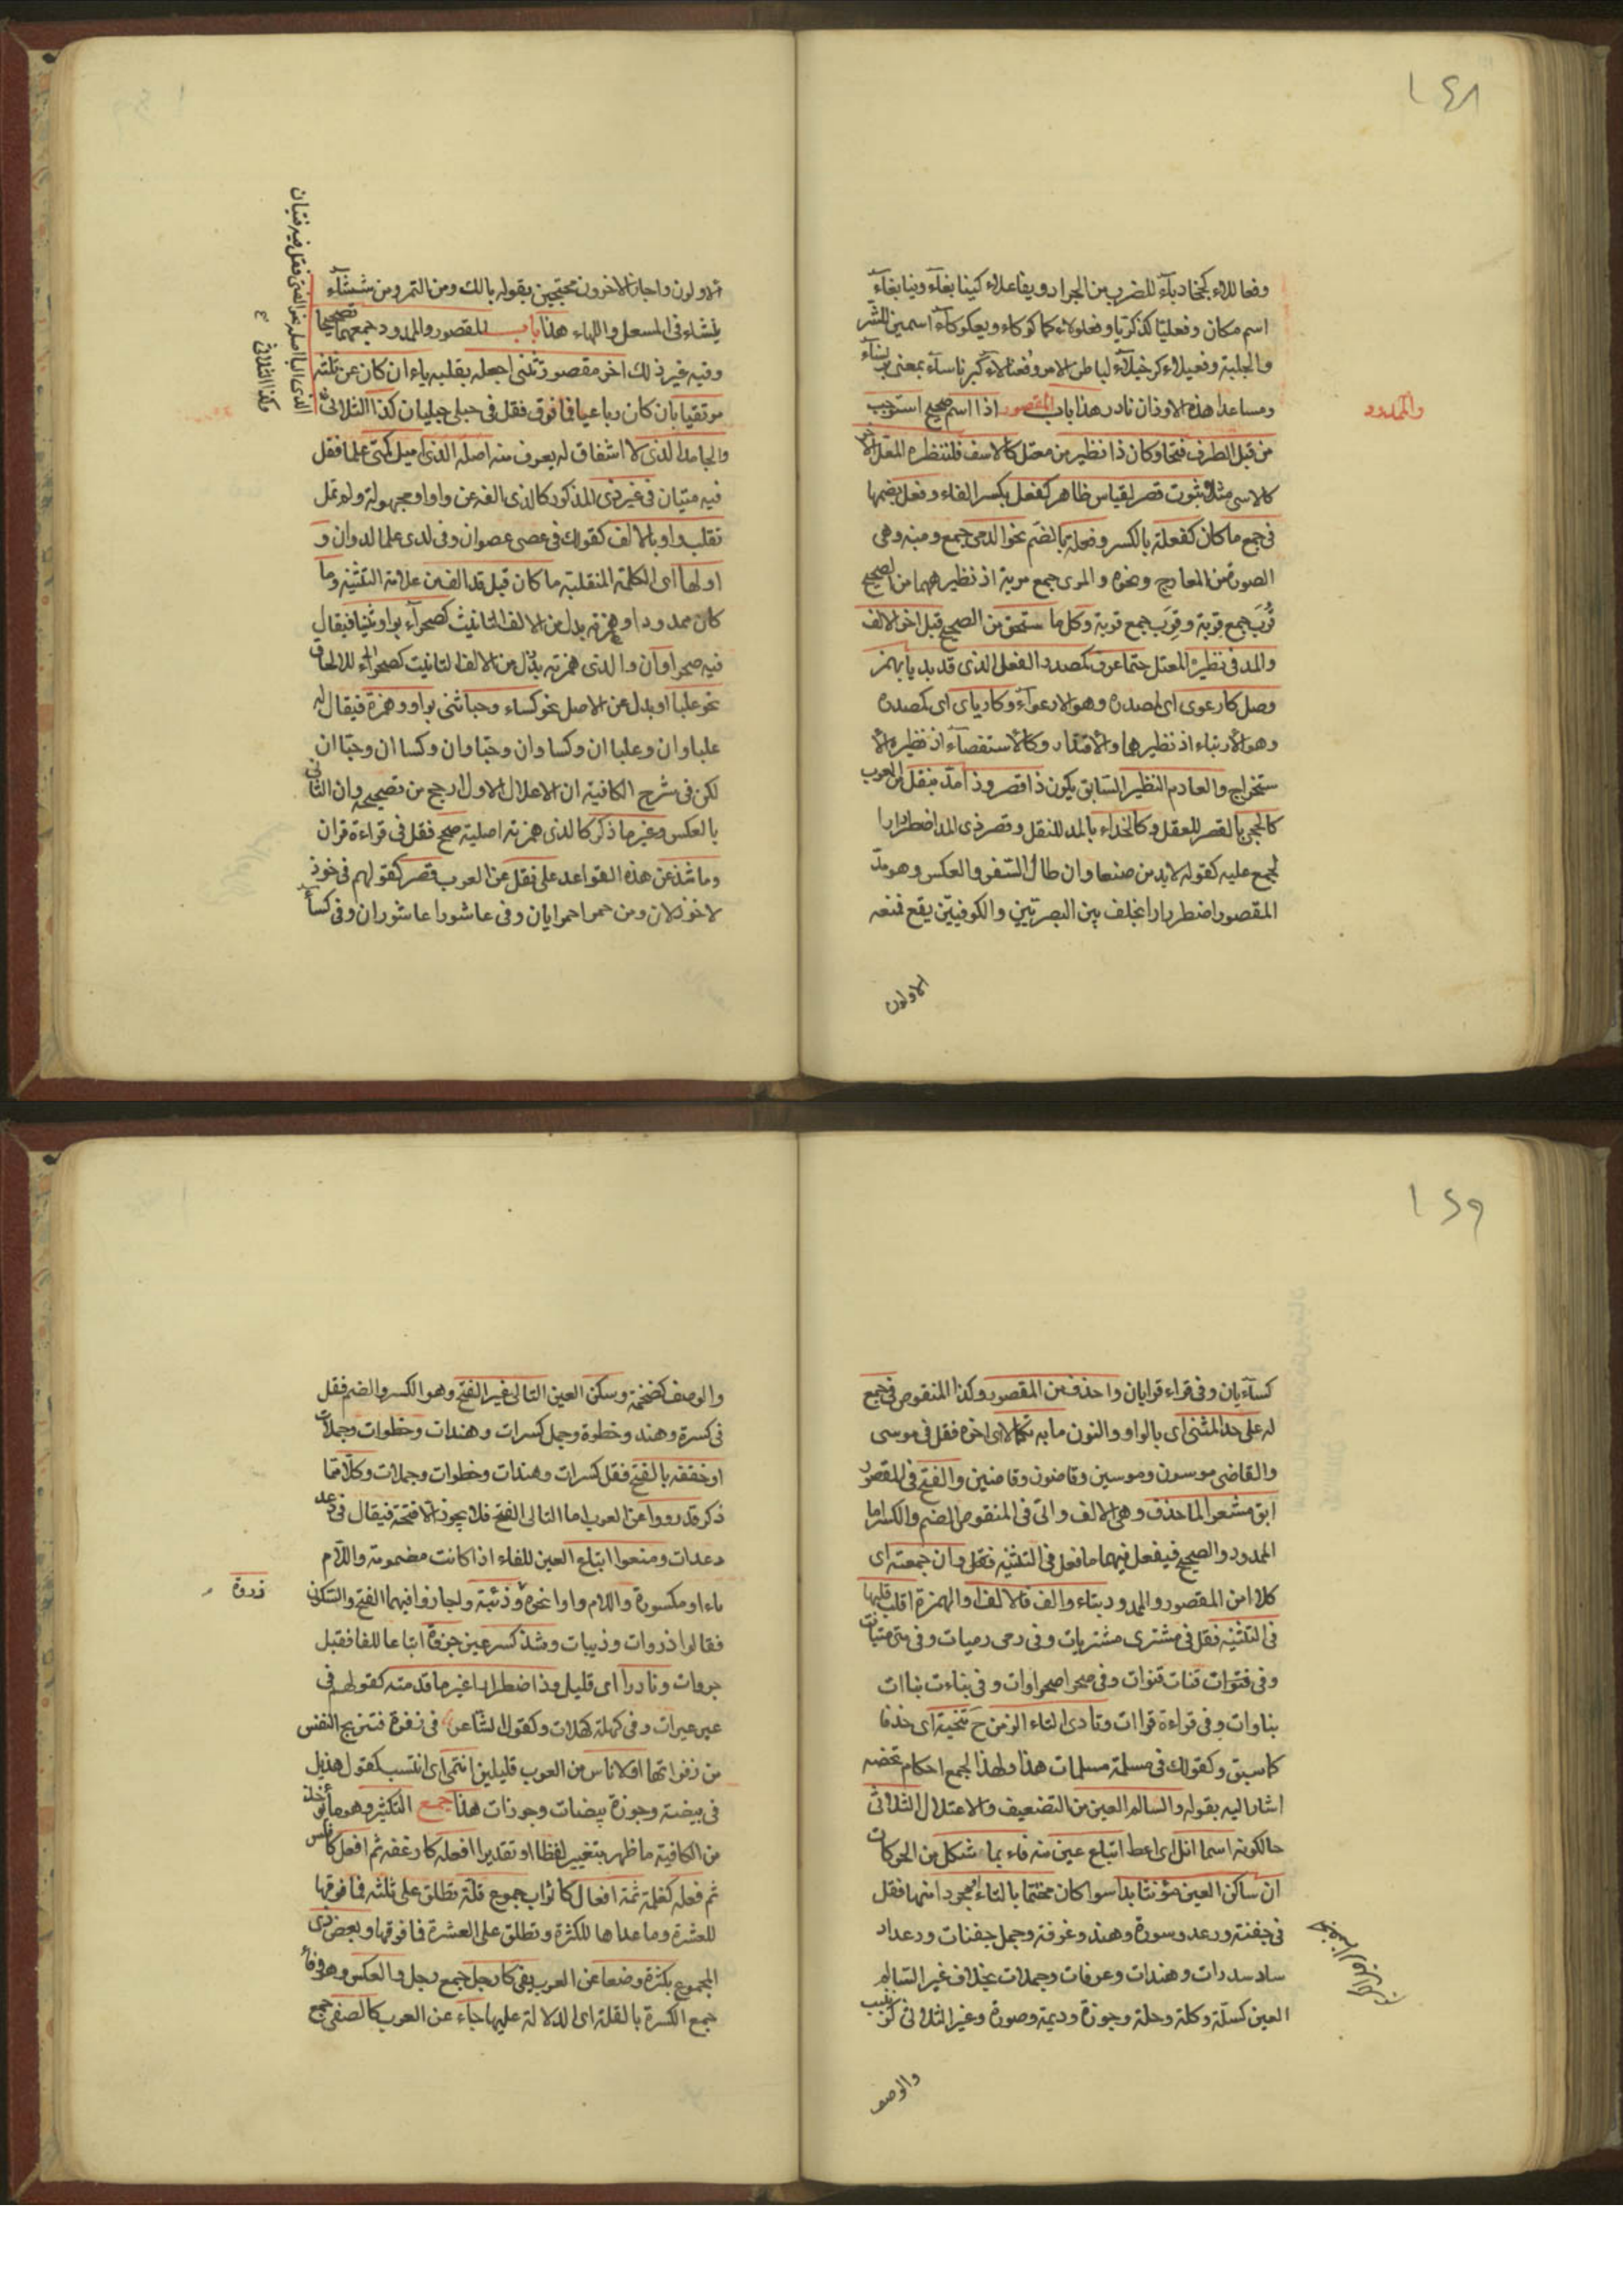 ١٤٨
وفعاللاء كخخادباء للضرب من الجراد ويفاعلاء كينابغاء وينابغاء
اسم مكان وفعليا كذكريا وفعلولاء كما كوكاء وبعكوكاء اسمين للشر
والجلبة وفعيلاء كدخيلاء لباطن الامر وفعنالاء كبرناساء بمعنى برنساء
وما عدا هذه الاوزان نادر هذا باب المقصور اذا اسم صحيح استوجب
والممدود
من قبل الطرف فتحا وكان ذا نظير من معتل كالاسف فلنظيره المعل الاخر
كالاسى مثلا ثبوت قصر بقياس ظاهر كفعل بكسر الفاء وفعل بضمها
فى جمع ما كان كفعلة بالكسر وفعلة بالضم نحو الدمى جمع دمية وهى
الصورة من العاج ونحوه والمرى جمع مرية اذ نظيرهما من الصحيح
قُرَب جمع قربة وقِرَب جمع قربة وكل ما ستحق من الصحيح قبل اخر الالف
والمد فى نظيره المعتل حتما عرف كمصدر الفعل الذى قد بديا بهمز
وصل كارعوى اى كمصدره وهو الارعواء وكارتاى اى كمصدره
وهو الارتياء اذ نظيرهما والاقتدار وكالاستقصاء اذ نظيره الا
ستخراج والعادم النظير السابق يكون ذا قصر وذا مد بنقل من العرب
كالحجى بالقصر للعقل وكالحذاء بالمد للنعل وقصر ذى المد اضطرارا
مجمع عليه كقوله لابد من صنعا وان طال السفر والعكس وهو مد
المقصور اضطرارا بخلف بين البصريين والكوفيين يقع فمنعه
الاولون
الاولون واجازه الاخرون محتجين بقوله يا لك ومن التمر ومن شيشاء
ينشاء فى المسعل واللهاء هذا باب للمقصور والممدود وجمعهما تصحيحا
وفيه غير ذلك اخر مقصور تثنى اجعله بقلبه ياء ان كان عن ثلثه
مرتقيا بان كان رباعيا فما فوق فقل فى حبلى حبليان كذا الثلاثى
الذى اليا اصله نحو الفتى فقل فيه فتيان
وكذا الثلاثى
والجامد الذى لا اشتقاق له يعرف منه اصله الذى اميل كمتى علما فقل
فيه متيان فى غير ذى المذكور كالذى الفه عن واو او مجهولة ولم تمل
تقلب واو بالالف كقولك فى عصى عصوان وفى لدى علما لدوان و
اولها اى الكلمة المنقلبة ما كان قبل قد الف من علامة التثنية وما
كان ممدودا وهمزته بدل من الالف التانيث كصحراء بواو ثنيا فيقال
فيه صحراوان والذى همزته بدل من الالف التانيث كصحراء للالحاق
نحو علبا او بدل عن الاصل نحو كساء وحيا ثنى بواو وهمزة فيقال له
علباوان وعلباان وكساوان وحياوان وكساان وحياان
لكن فى شرح الكافية ان الاعلال الاول ارجح من تصحيحه وان الثانى
بالعكس وغير ما ذكر كالذى همزته اصلية صحح فقل فى قراءة قراان
وما شذ عن هذه القواعد على نقل عن العرب قصر كقولهم فى خوذ
لاخوذلان ومن حمرا حمرايان وفى عاشورا عاشوران وفى كساء
١٤٩
كسايان وفى قراء قرايان واحذف من المقصور وكذا المنقوص فى جمع
له على حد المثنى اى بالواو والنون ما به تكملا اى اخره فقل فى موسى
والقاضى موسون وموسين وقاضون وقاضين والفتح فى المقصور
ابق مشعرا بما حذف وهى الالف والتى فى المنقوص الضم والكسر اما
الممدود والصحيح فيفعل فيهما ما فعل فى التثنية فقط وان جمعته اى
كلا من المقصور والممدود بتاء والف فالالف او الهمزة اقلب قلبها
فى التثنية فقل فى مشترى مشتريات وفى رحى رحيات وفى متى متيات
وفى قنوات قنات قنوات وفى صحرا صحراوات وفى بناءت بناات
بناوات وفى قراءة قراات وتا ذى التاء الزمن ح تنحية اى حذفا
كما سبق وكقولك فى مسلمة مسلمات هذا ولهذا الجمع احكام تخصه
اشار اليه بقوله والسالم العين من التضعيف والاعتلال الثلاثى
حالكونه اسما انل اى اعط اتباع عين منه فاء بما شكل من الحركات
ان ساكن العين مؤنثا بدا سوا كان مختتما بالتاء او مجردا منها فقل
فى جفنة ودعد وسدرة وهند وغرفة وجمل جفنات ودعدات
سدرات وهندات وغرفات وجملات بخلاف غير السالم
العين كسلة وكلة وحلة وجوزة وديمة وصورة وغير الثلاثى كزينب
والوصف
والوصف كضخمة وسكن العين التالى غير الفتح وهو الكسر والضم فقل
فى كسرة وهند وخطوة وجمل كسرات وهندات وخطوات وجملات
او خففه بالفتح فقل كسرات وهندات وخطوات وجملات وكلا مما
ذكر قد رووا عن العرب اما التالى الفتح فلا يجوز الا فتحه فيقال فى دعد
دعدات ومنعوا اتباع العين للفاء اذا كانت مضمومة واللام
ياء او مكسورة واللام واوا نحو وذئبة واجازوا فيهما الفتح والسكون
ذروة
فقالوا ذروات وذبيات وشذ كسر عين جروة اتباعا للفا فقيل
جروات ونادرا اى قليل وذا اضطرار غير ما قدمته كقولهم فى
عير عيرات وفى كهلة كهلات وكقول الشاعر فى زفرة فتستريح النفس
من زفراتها او لاناس من العرب قليلين انتمى اى انتسب كقول هذيل
فى بيضة وجوزة بيضات وجوزات هذا جمع التكثير وهو ما يؤخذ
من الكافية ما ظهر بتغيير لفظا او تقديرا افعلة كارغفة ثم افعل كافلس
ثم فعله كغلمة ثمة افعال كاثواب جموع قلة تطلق على ثلثه فما فوقها
للعشرة وما عداها للكثرة وتطلق على العشرة فما فوقها وبعض ذى
المجموع بكثرة وضعا عن العرب يفى كارجل جمع رجل والعكس وهو وفاء
جمع الكثرة بالقلة اى الدلالة عليها جاء عن العرب كالصفى جمع